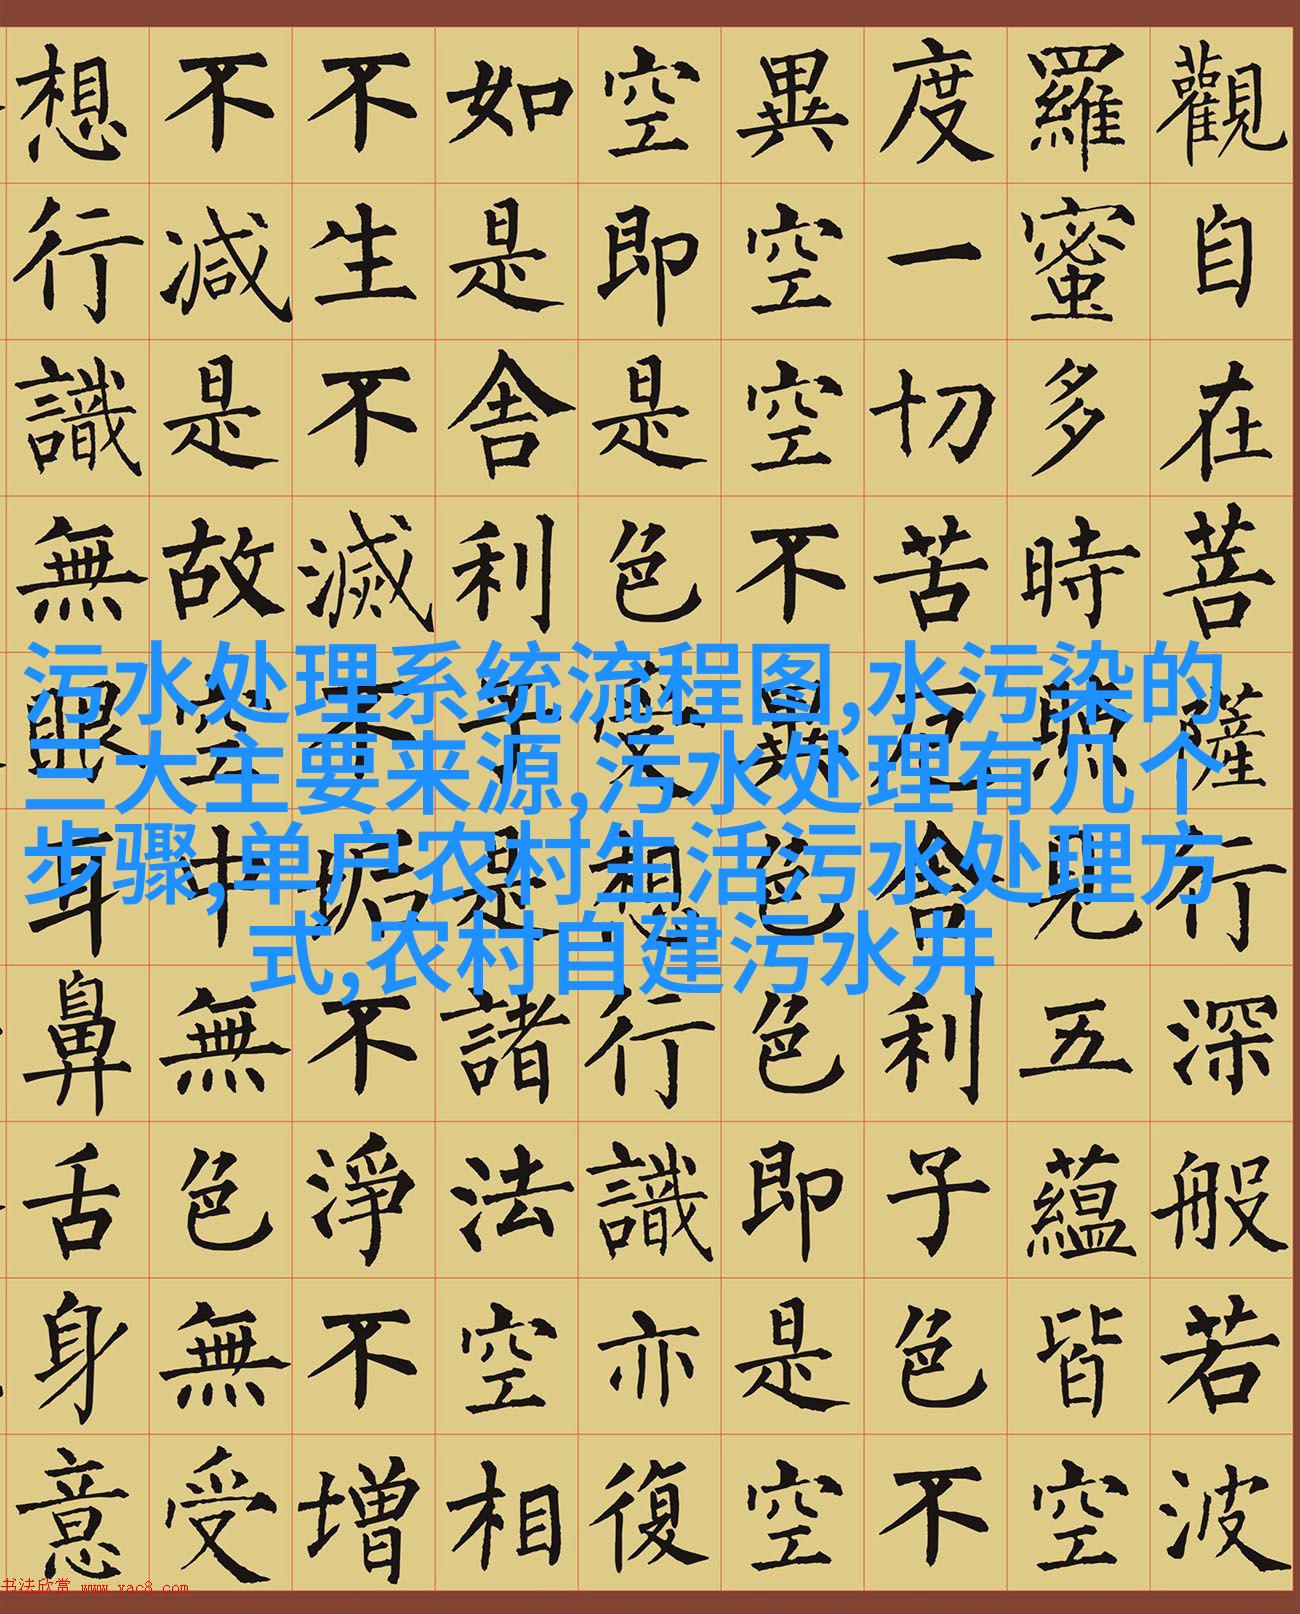 觀自在菩薩行深般若波
羅蜜多時照見五蘊皆空
度一切苦厄舍利子色不
異空空不異色色即是空
空即是色受想行識亦復
如是舍利子是諸法空相
不生不滅不垢不淨不增
不減是故空中無色無受
想行識無眼耳鼻舌身意
污水处理系统流程图,水污染的
三大主要来源,污水处理有几个
步骤,单户农村生活污水处理方
式,农村自建污水井
书法欣赏 www.yac8.com